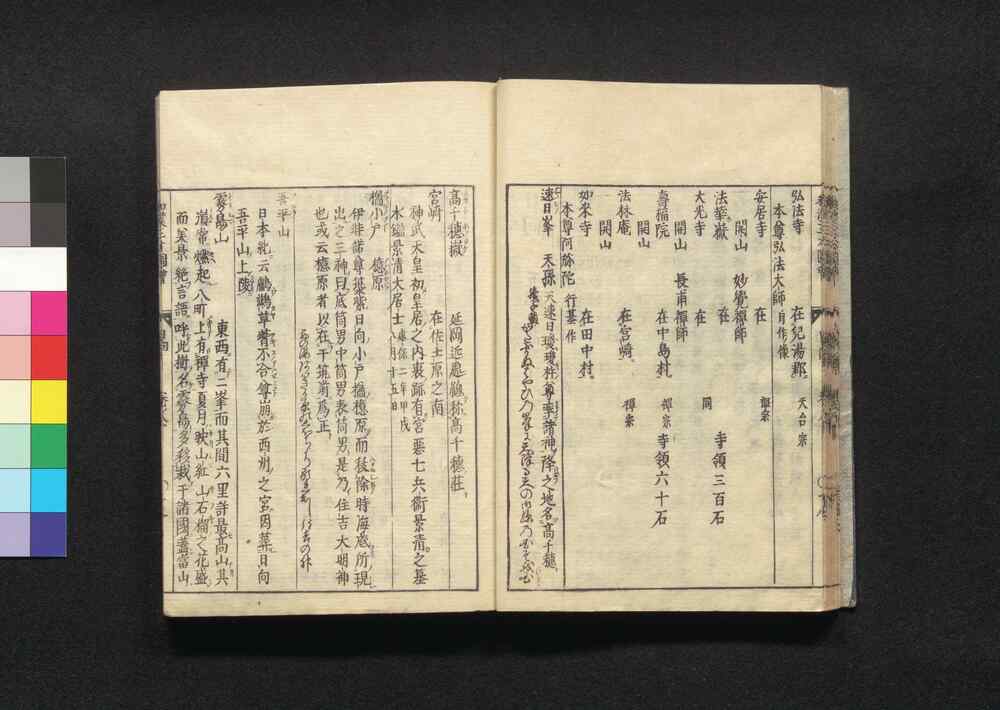 弘法寺 在兒湯郡 天台宗
本尊弘法大師自作像
安居寺 在 禪宗
開山 妙覺禪師
法華嶽 在 寺領三百石
大光寺 在 同
開山 長甫禪師
壽福院 在中島村 禪宗 寺領六十石
開山
法林庵 在宮﨑 禪宗
開山
如米寺 在田中村
本尊阿弥陀 行基作
速日峯 天孫天速日瓊瓊杵尊率諸神降之地名高千穂
高千穂嶽 延岡近邊𩀱称高千穂莊
宮﨑 在佐土原之南
神武天皇初皇居之内裏跡有宮悪七兵衛景清之墓
水鑑景清大居士 二年甲戌八月十五日
檍小戸 檍原
伊弉諾尊築紫日向小戸檍原而秡除時海底所現
出之三神曰底筒男中筒男表筒男是乃住吉大明神
也或云檍原者以在于筑前為正
吾平山
日本紀云鸕鷀草葺不合尊崩於西州之宮因葬日向
吾平山上陵
霧島山 東西有二峯而其間六里許最高山其
嶺常燃起八町上有禪寺夏月映山紅山石榴之花盛
而美景絶言語呼此樹名霧島多移栽于諸國蓋當山